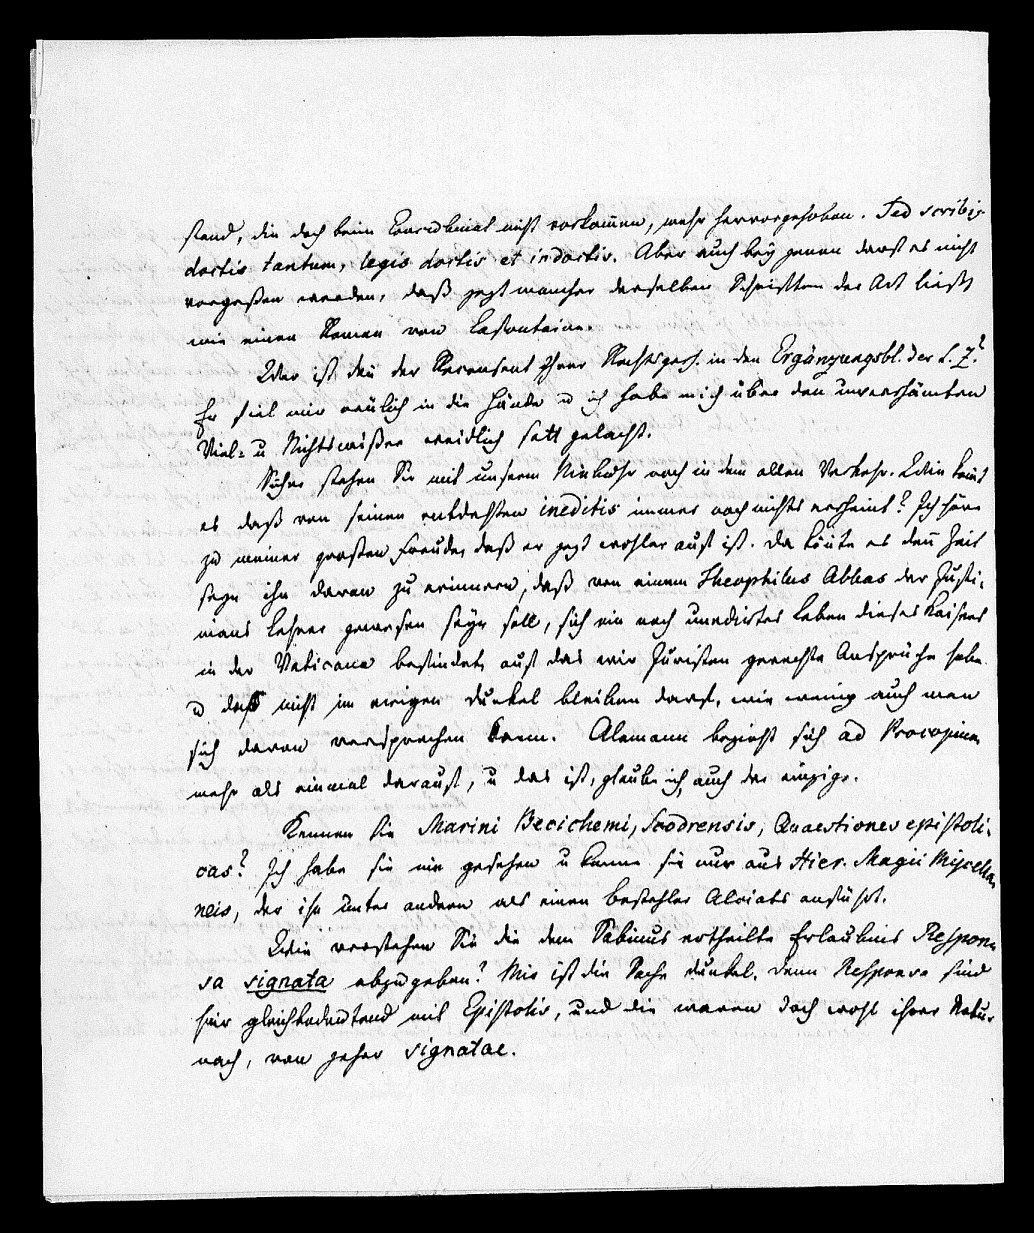 stand, die doch beim Concubinat nicht vorkom̄en, mehr hervorgehoben. Sed scribis
doctis tantum, legis doctis et indoctis. Aber auch bey jenen darf es nicht
vergeßen werden, daß jezt mancher derselben Schriften der Art ließt
wie einen Roman von Lafontaine.
Wer ist den̄ der Recensent Ihrer Rechtsgesch. in den Ergänzungsbl. der L. Z.?
Er fiel mir neulich in die Hände u ich habe mich über den unverschämten
Viel- u Nichtswißer weidlich satt gelacht.
Sicher stehen Sie mit unserm Niebuhr noch in dem alten Verkehr. Wie kom̄t
es daß von seinen entdekten ineditis immer noch nichts erscheint? Ich höre
zu meiner großen Freude, daß er jezt wohler auf ist. Da kön̄te es den̄ Zeit
seyn ihn daran zu erinnern, daß von einem Theophilus Abbas der Justi-
nians Lehrer gewesen seyn soll, sich ein noch unedirtes Leben dieses Kaisers
in der Vaticana befindet, auf das wir Juristen gerechte Ansprüche haben
u das nicht im ewigen Dunkel bleiben darf, wie wenig auch man
sich davon versprechen kann. Alemann bezieht sich ad Procopium
mehr als einmal darauf, u das ist, glaube ich, auch der einzige.
Kennen Sie Marini Becichemi, Scodrensis, Quaestiones epistoli-
cas? Ich habe sie nie gesehen u kenne sie nur aus Hier. Magii Miscella-
neis, der ihn unter andern als einen Bestehler Alciats anführt.
Wie verstehen Sie die dem Sabinus ertheilte Erlaubnis Respon-
sa signata abzugeben? Mir ist die Sache dunkel. Denn Responsa sind
hier gleichbedeutend mit Epistolis, und die waren doch wohl ihrer Natur
nach, von jeher signatae.